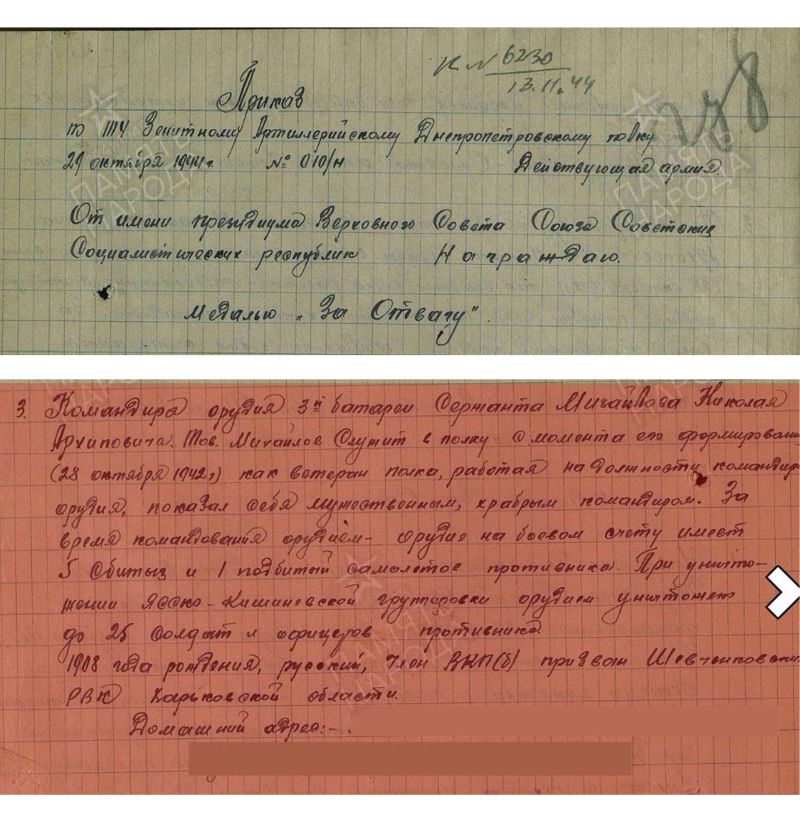 к № 6230
13.11.44
Приказ
по 1114 Зенитному Артиллерийскому Днепропетровскому полку
29 октября 1944г. № 010/н Действующая армия.
От имени президиума Верховного Совета Союза Советских
Социалистических республик Награждаю.
Медалью „За Отвагу".
ПАМЯТЬ НАРОДА
3. Командира орудия 3й батареи Сержанта Михайлова Николая
Архиповича. Тов. Михайлов Служит в полку с момента его формирован
(28 октября 1942г) как ветеран полка, работая на должности командир
орудия, показал себя мужественным, храбрым командиром. За
время командования орудием- орудие на боевом счету имеет
5 сбитых и 1 подбитый самолетов противника. При уничто-
жении Ясско-Кишиневской группировки орудием уничтожено
до 25 солдат и офицеров противника
1908 года рождения, русский, член ВКП(б) призван Шевченковски
РВК Харьковской области.
Домашний адрес:-.